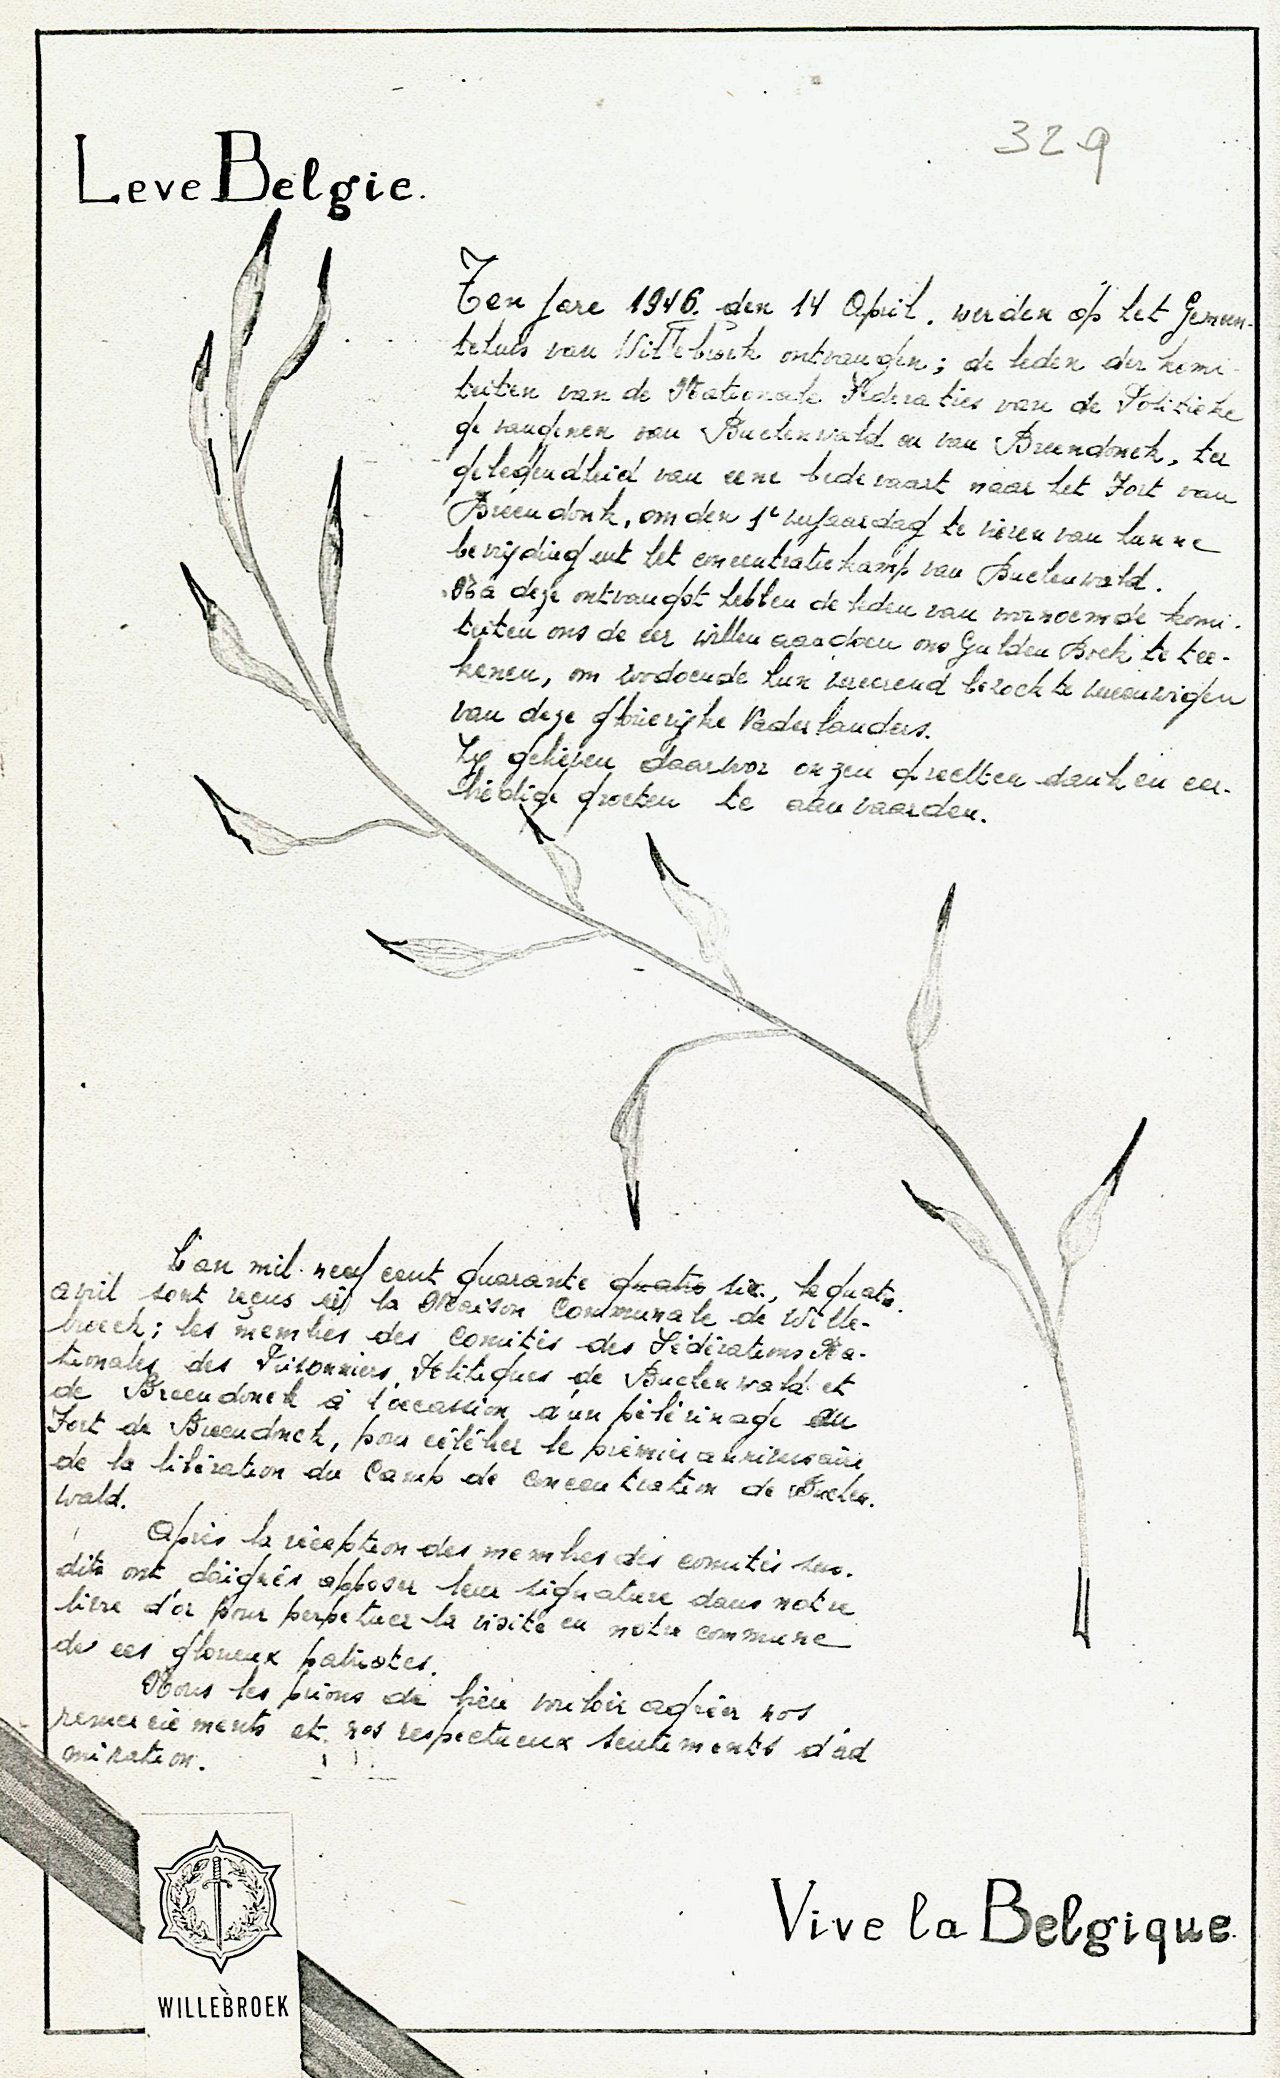 329
Leve Belgie.
Ten Jare 1946. den 14 April. werden op het Gemeen-
tehuis van Willebroek ontvangen; de leden der komi-
teiten van de Nationale Federaties van de Politieke
gevangenen van Buchenwald en van Breendonck, ter
gelegendheid van eene bedevaart naar het Fort van
Breendonk, om den 1e verjaardag te vieren van hunne
bevrijding uit het concentratiekamp van Buchenwald.
Na deze ontvangst hebben de leden van vornoemde komi-
teiten ons de eer willen aandoen ons Gulden Boek te tee-
kenen, om zodoende hun vereerend bezoek te vereeuwigen
van deze glorierijke Vaderlanders.
Zij gelieven daarvoor onzen grooten dank en eer-
biedige groeten te aanvaarden.
L'an mil neuf cent quarante quatre six, le quato.
avril sont reçus en la Maison Communale de Wille-
broeck; les membres des Comités des Fédérations Na-
tionales des Prisonniers Politiques de Buchenwald et
de Breendonck à l'occasion d'un pélérinage au
Fort de Breendonck, pour célébrer le premier anniversaire
de la libération du Camp de Concentration de Buchen.
wald.
Après la réception des membres des comités sus.
dits ont daignés apposer leur signature dans notre
livre d'or pour perpetuer la visite en notre commune
de ces glorieux patriotes.
Nous les prions de bien vouloir agréer nos
remerciements et nos respectueux sentiments d'ad
miration.
WILLEBROEK
Vive la Belgique.